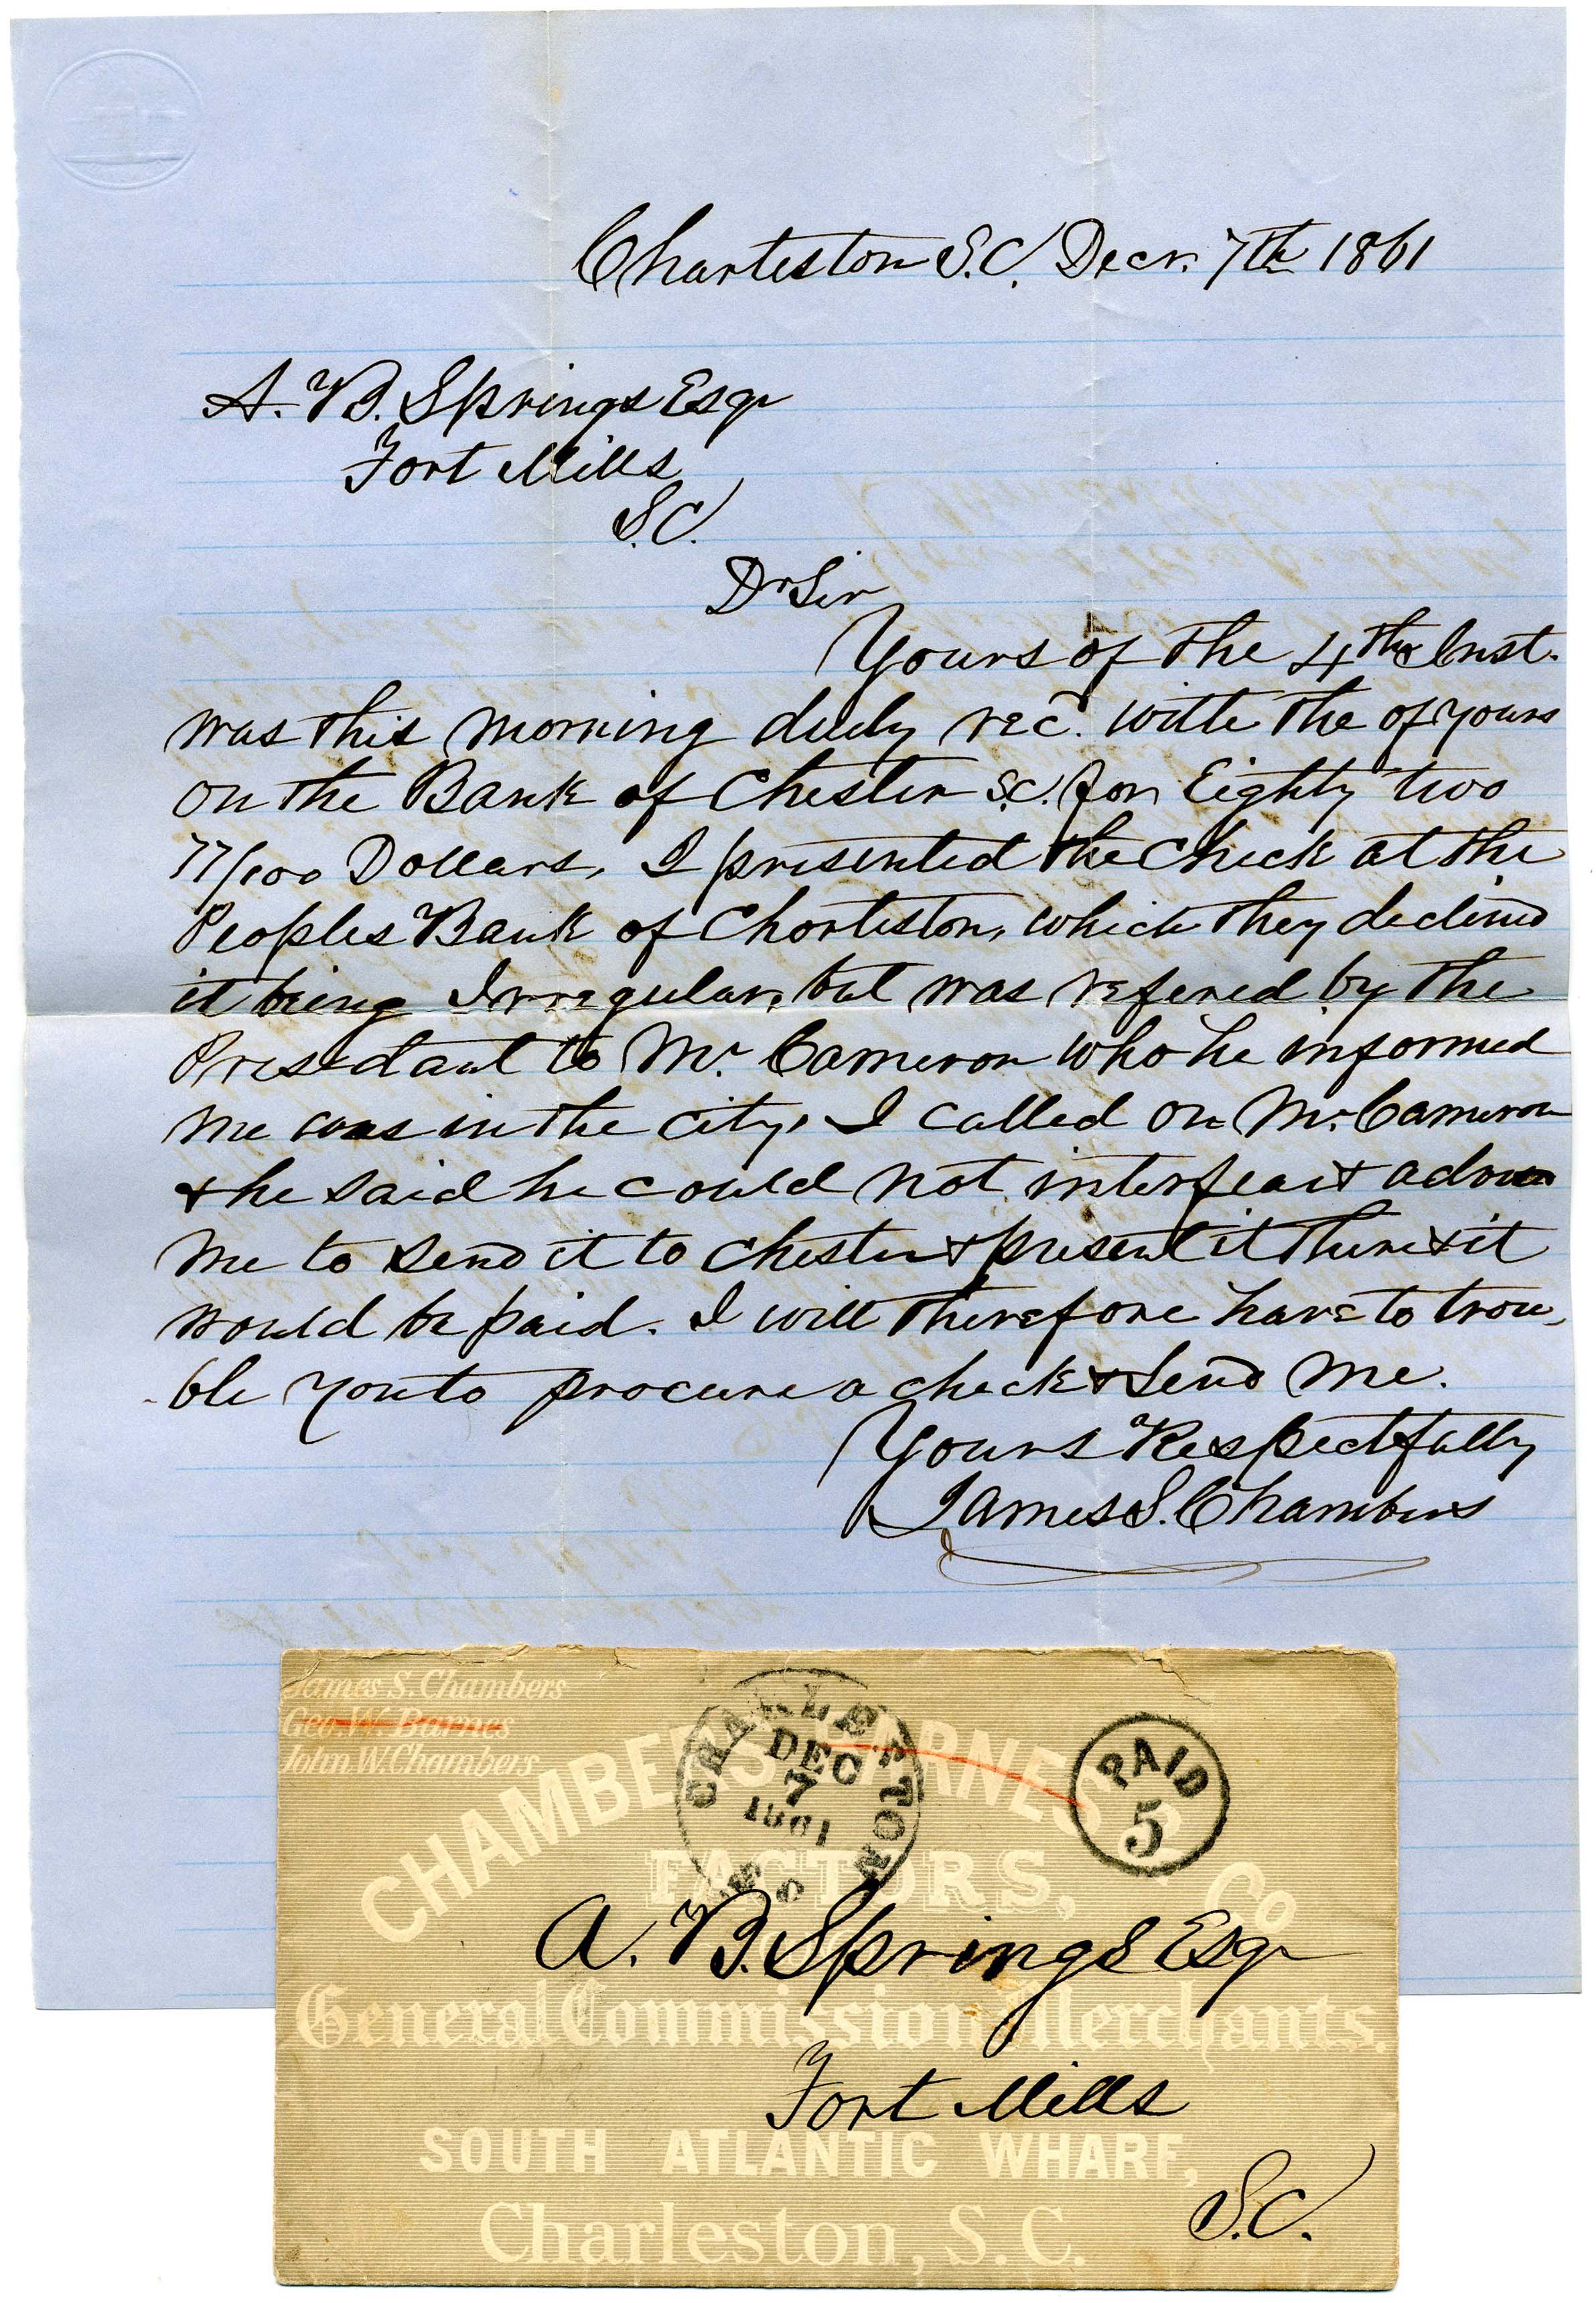 Charleston S.C. Decr. 7th 1861
A. B. Springs Esqr
Fort Mills
S.C.
Dr Sir
Yours of the 4th Inst.
was this morning duly rec. with the of yours
on the Bank of Chester S.C. for Eighty two
77/100 Dollars, I presented the Check at the
Peoples Bank of Charleston, which they declined
it being Irregular, but was refered by the
Presidant to Mr. Cameron who he informed
me was in the city, I called on Mr. Cameron
& he said he could not interfear &
me to send it to Chester & present it there & it
would be paid. I will therefore have to trou,
ble you to procure a check & send me.
Yours Respectfully
James S. Chambers
James S. Chambers
Geo. W. Barnes
John W. Chambers
CHAMBERS, BARNES & CO
FACTORS,
General Commission Merchants.
SOUTH ATLANTIC WHARF,
Charleston, S.C.
CHARLESTON
DEC
7
1861
S C
PAID
5
A. B. Springs Esqr
Fort Mills
S.C.